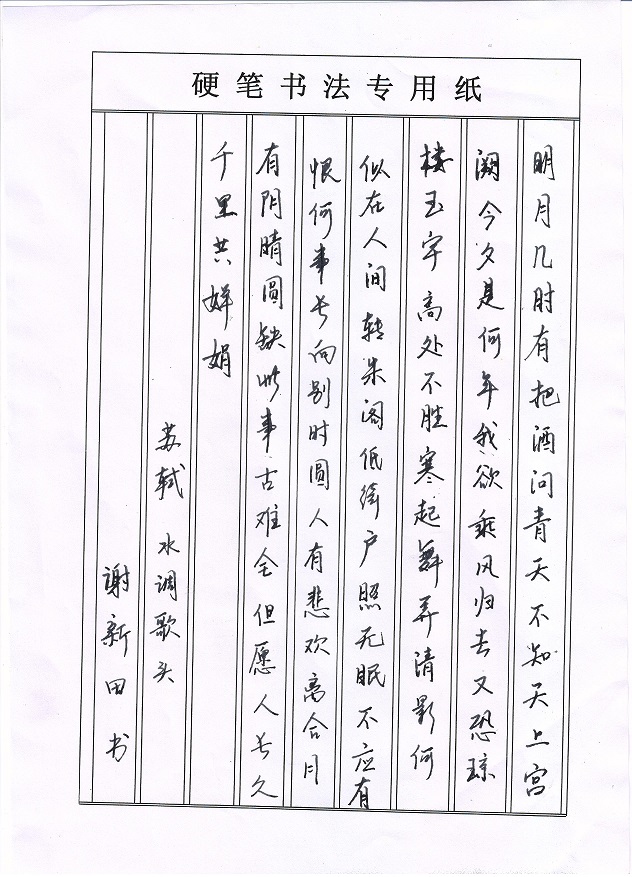 硬笔书法专用纸
明月几时有把酒问青天不知天上宫
阙今夕是何年我欲乘风归去又恐琼
楼玉宇高处不胜寒起舞弄清影何
似在人间转朱阁低绮户照无眠不应有
恨何事长向别时圆人有悲欢离合月
有阴晴圆缺此事古难全但愿人长久
千里共婵娟
苏轼 水调歌头
谢新田书